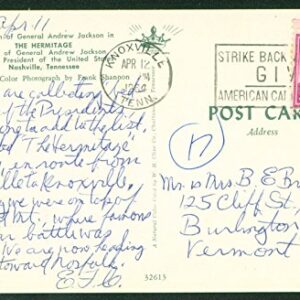 April 11
n of General Andrew Jackson in
THE HERMITAGE
of General Andrew Jackson
President of the United States
Nashville, Tennessee
Color Photograph by Frank Shannon
are collecting
of the Presidents
and add to the list,
"the Hermitage"
en route from
to Knoxville,
we were on top of
Mt., where famous
war battle was
We are now heading
toward Norfolk.
E.F.C.
52615
KNOXVILLE
APR 12
TENN.
STRIKE BACK
GIV
AMERICAN CAN
POST CAR
Address
17
Mr & Mrs B. E. Br
125 Cliff St.,
Burlington
Vermont